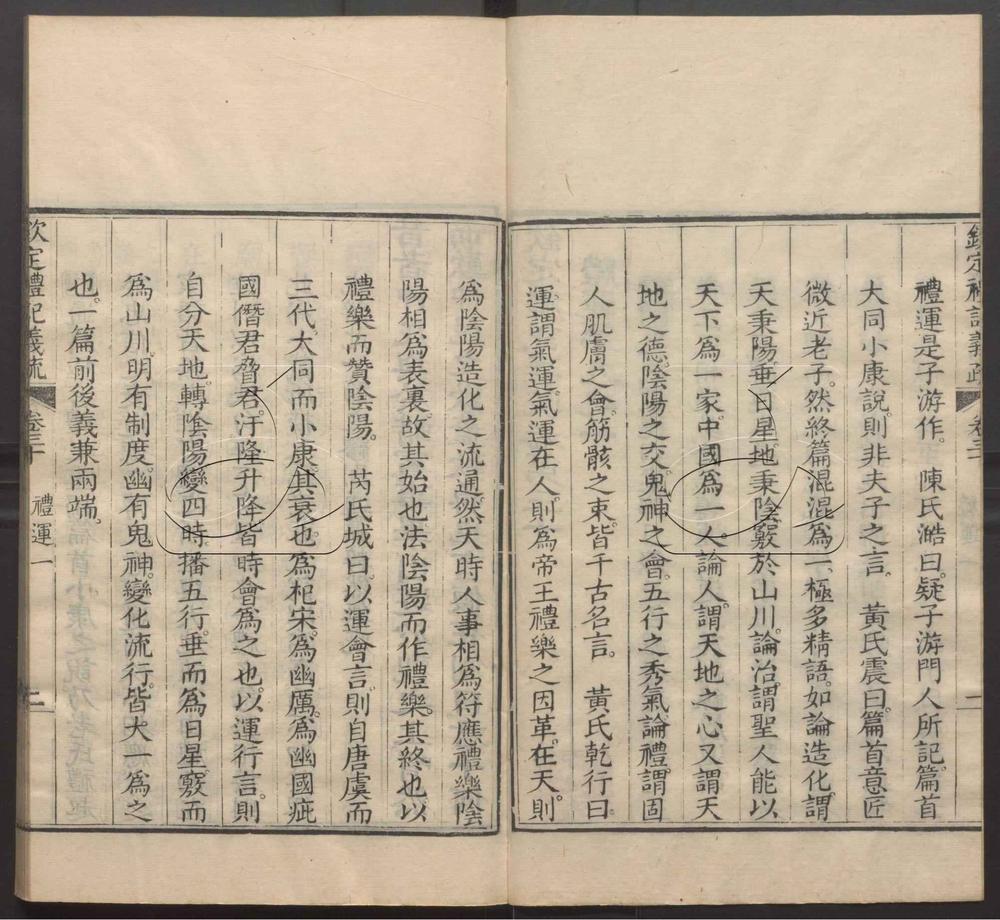 欽定禮記義疏 卷三十
禮運是子游作。 陳氏澔曰。疑子游門人所記。篇首
大同小康說。則非夫子之言。 黃氏震曰。篇首意匠
微近老子。然終篇混混爲一、極多精語。如論造化。謂
天秉陽垂日星。地秉陰竅於山川。論治。謂聖人能以
天下爲一家。中國爲一人。論人。謂天地之心又謂天
地之德。陰陽之交。鬼神之會。五行之秀氣論禮。謂固
人肌膚之會。筋骸之束。皆千古名言。 黃氏乾行曰。
運。謂氣運。氣運在人。則爲帝王禮樂之因革。在天。則
爲陰陽造化之流通。然天時人事相爲符應。禮樂陰
陽相爲表裏。故其始也法陰陽而作禮樂。其終也以
禮樂而贊陰陽。 芮氏城曰。以運會言。則自唐虞而
三代。大同而小康。其衰也。爲杞宋。爲幽厲。爲幽國疵
國僭君脅君。汙隆升降皆時會爲之也。以運行言。則
自分天地。轉陰陽。變四時。播五行。垂而爲日星。竅而
爲山川。明有制度。幽有鬼神。變化流行。皆大一爲之
也。一篇前後義兼兩端。
欽定禮記義疏 卷三十 禮運一 二